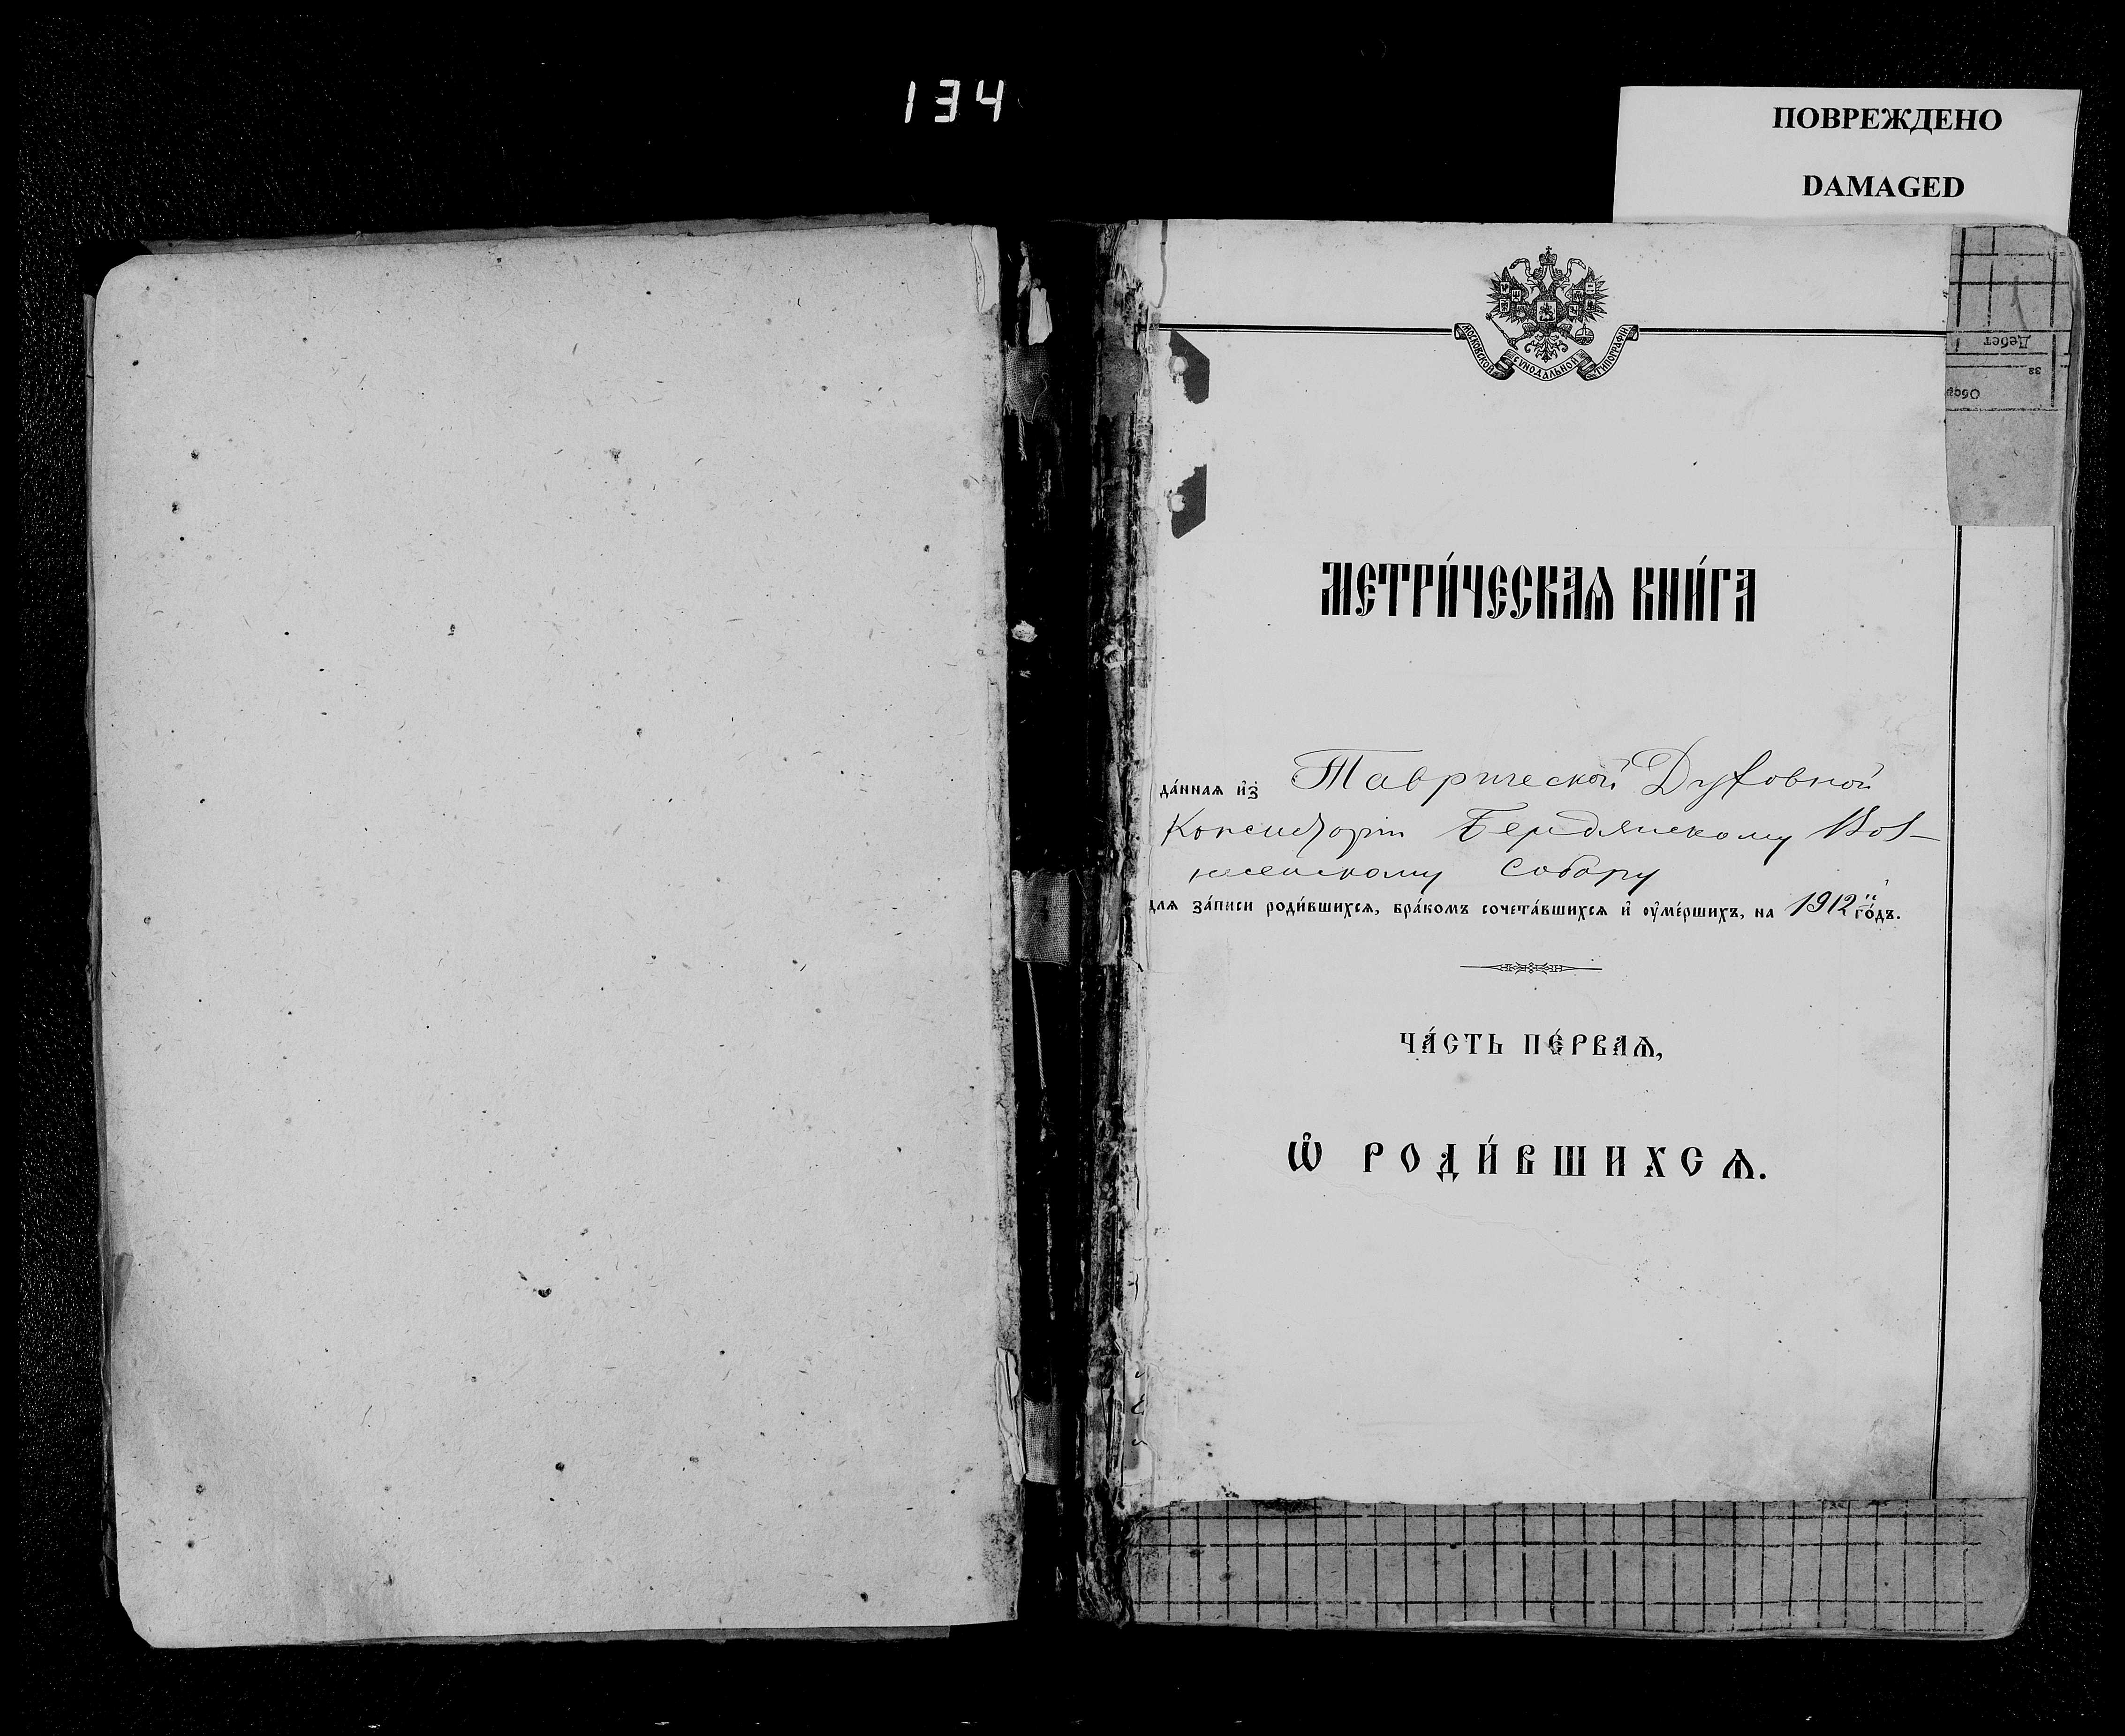 134
ПОВРЕЖДЕНО
DAMAGED
МОСКОВСКОЙ СѴНОДАЛЬНОЙ ТИПОГРАФІИ
Дебет
33
МЕТРИ́ЧЕСКАѦ КНИ́ГА
да́ннаѧ и҆з̾ Таврической Духовной
Консисторіи Бердянскому Воз-
несенскому Собору
длѧ за́писи роди́вшихсѧ, бра́комъ сочета́вшихсѧ и҆ оу҆ме́ршихъ, на 1912й го́дъ.
ЧА́СТЬ ПЕ́РВАѦ,
Ѽ РОДИ́ВШИХСѦ.